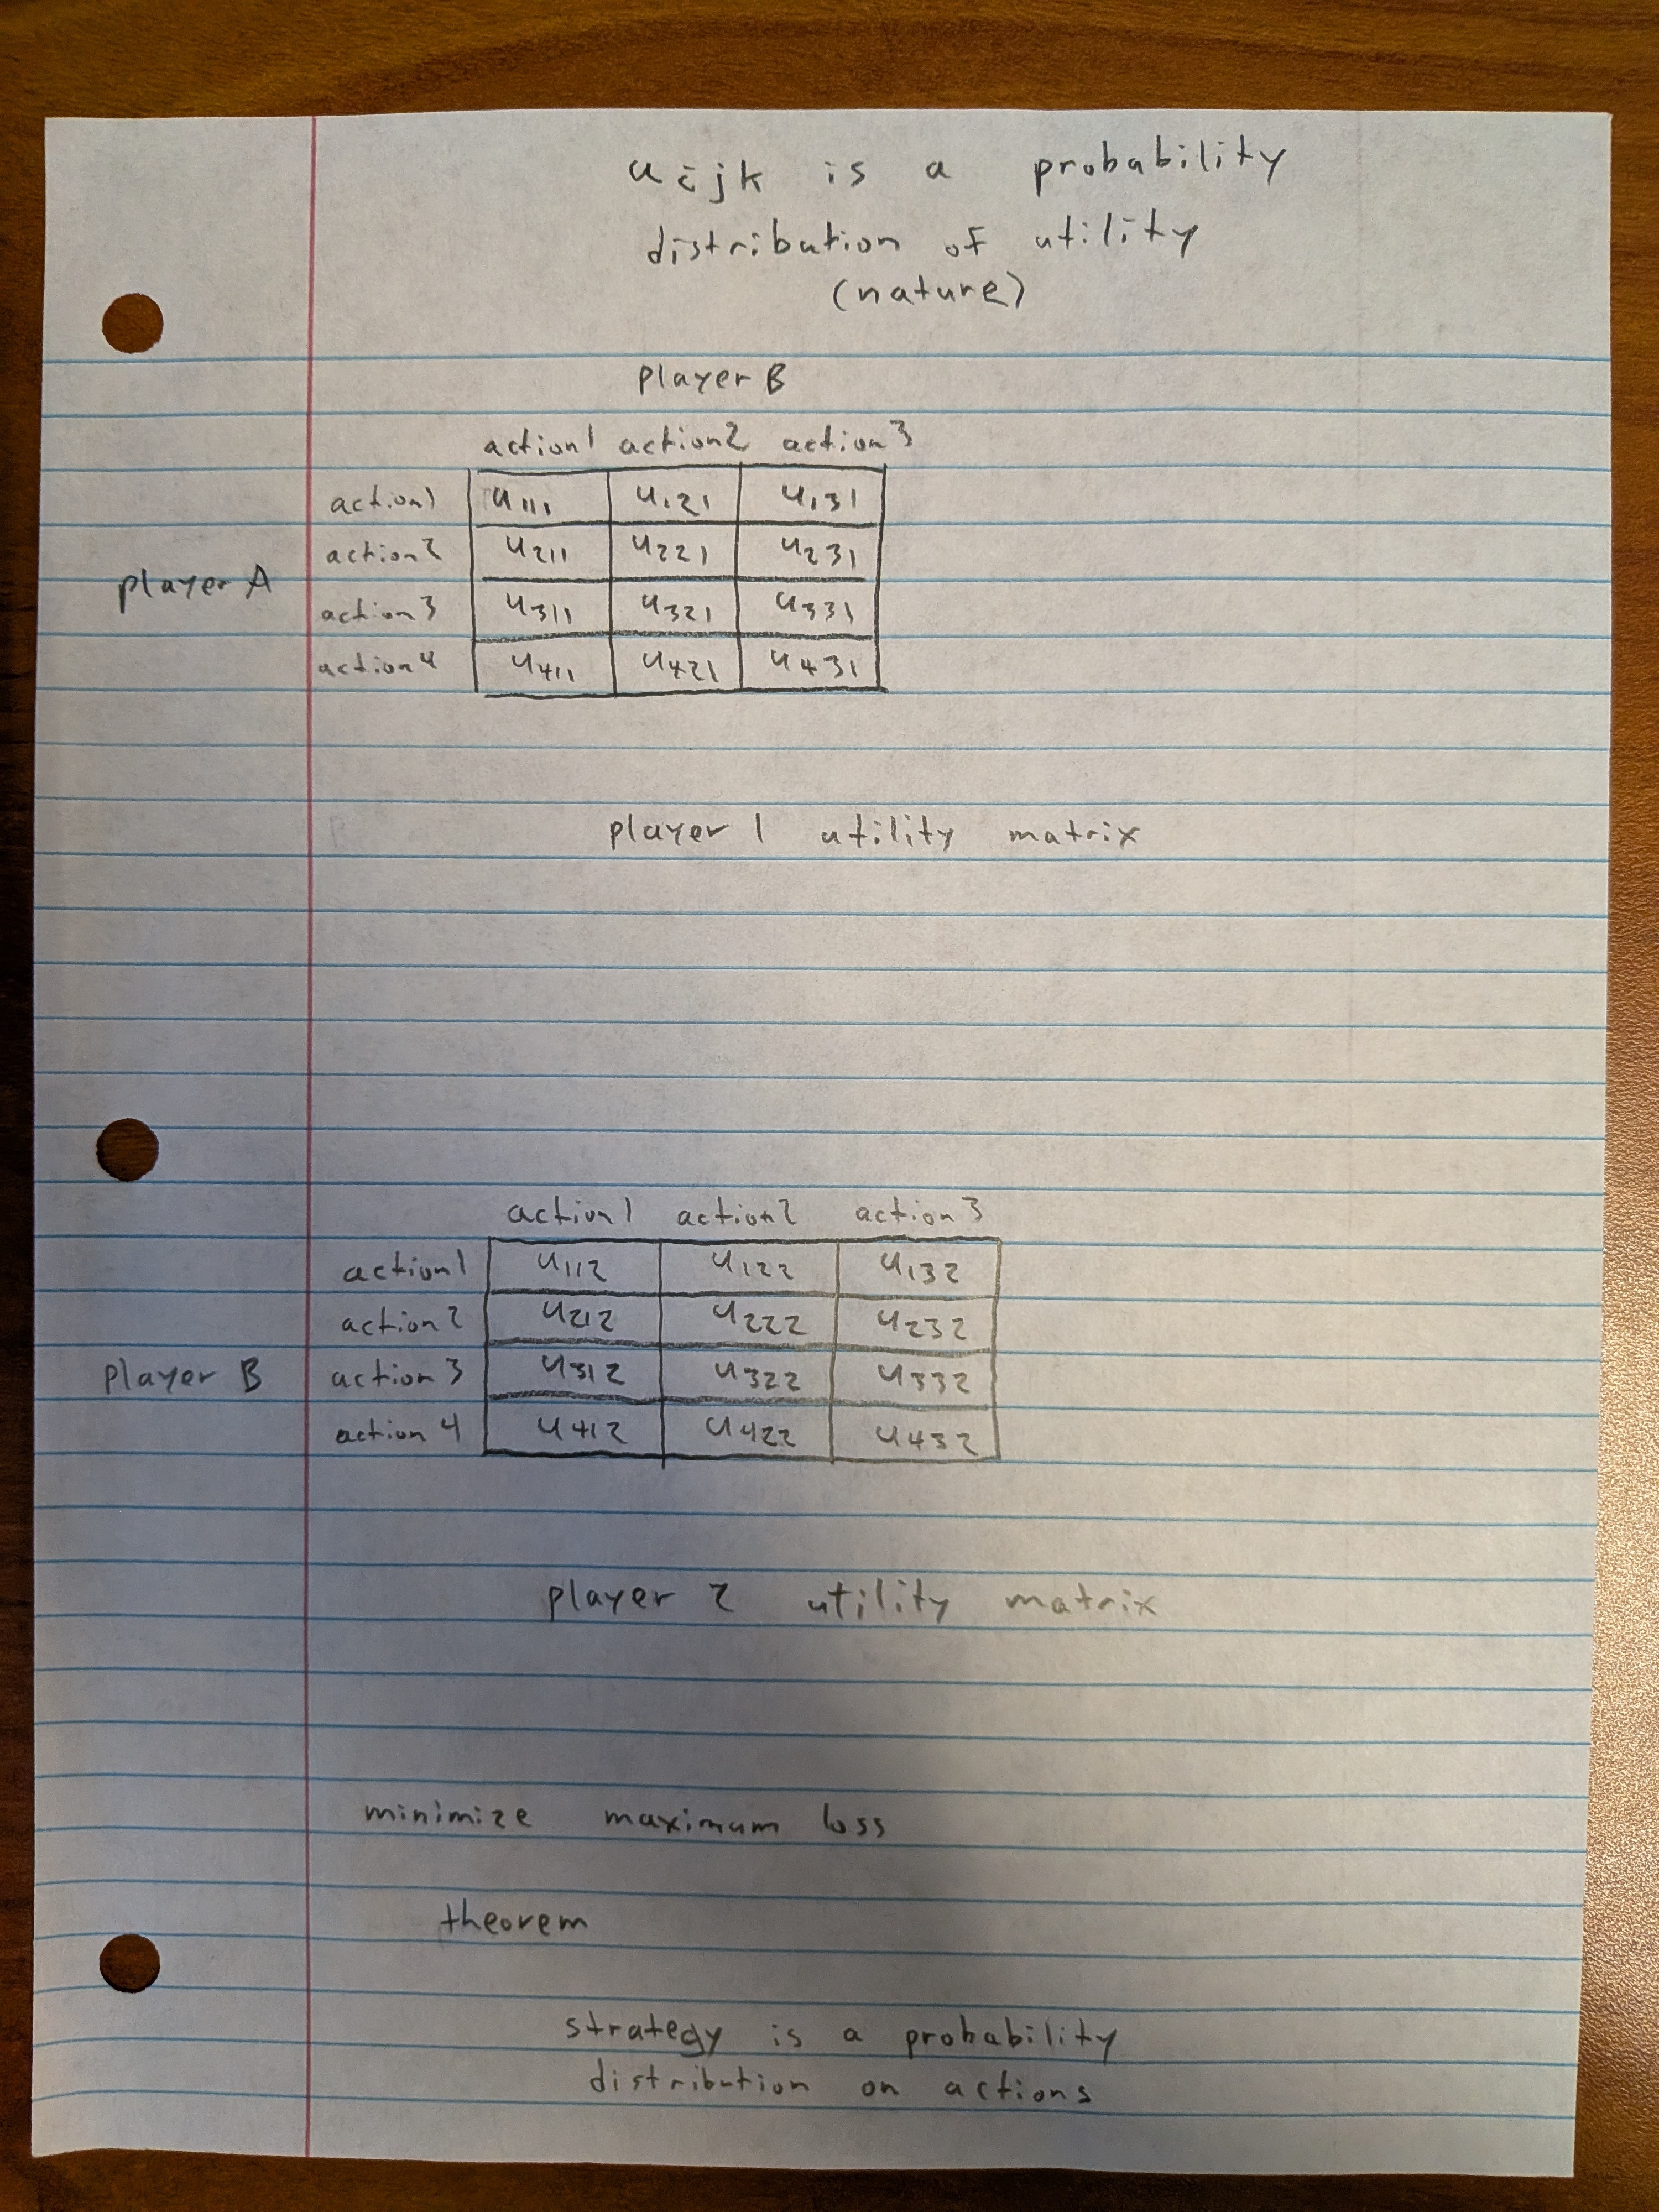 uijk is a probability
distribution of utility
(nature)
player B
action1 action2 action3
action1 u111 u121 u131
action2 u211 u221 u231
player A
action3 u311 u321 u331
action4 u411 u421 u431
player 1 utility matrix
action1 action2 action3
action1 u112 u122 u132
action2 u212 u222 u232
player B action3 u312 u322 u332
action4 u412 u422 u432
player 2 utility matrix
minimize maximum loss
theorem
strategy is a probability
distribution on actions